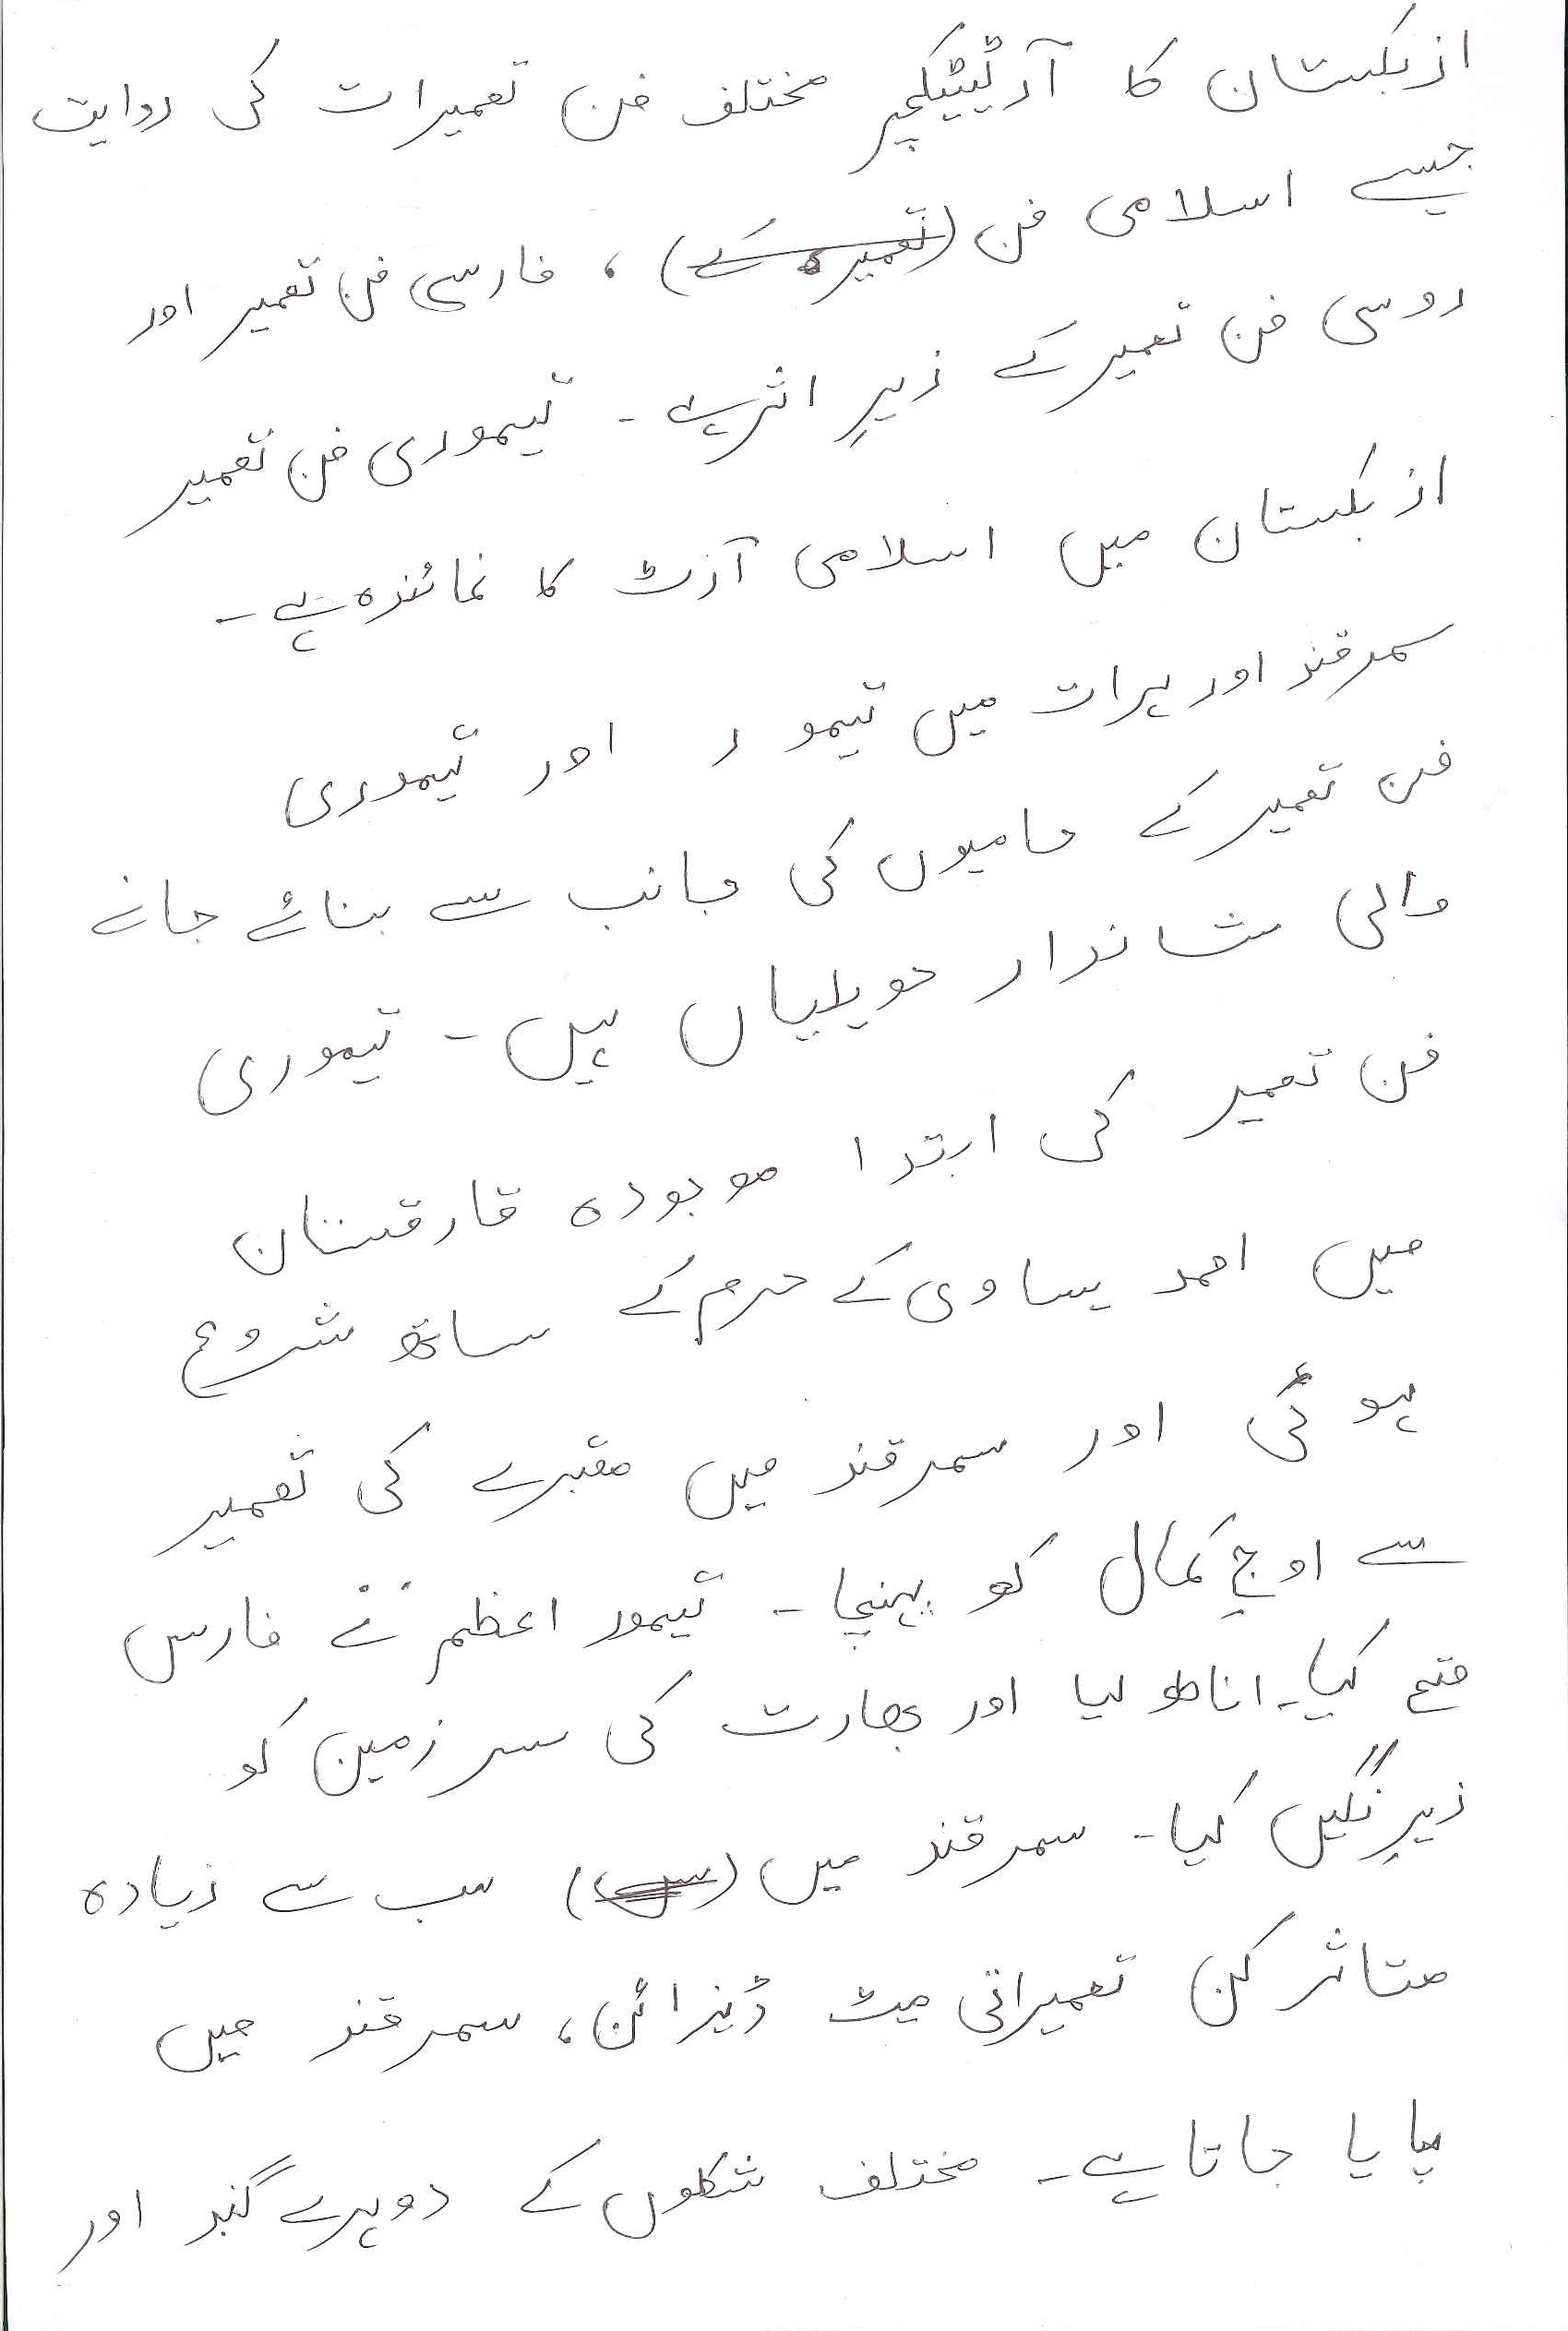 ازبکستان کا آرٹیٹیکچر مختلف فن تعمیرات کی روایت
جیسے اسلامی فن (تعمیر کے)، فارسی فن تعمیر اور
روسی فن تعمیر کے زیرِ اثر ہے۔ تیموری فن تعمیر
ازبکستان میں اسلامی آرٹ کا نمائندہ ہے۔
سمرقند اور ہرات میں تیمور اور تیموری
فن تعمیر کے حامیوں کی جانب سے بنائے جانے
والی شاندار حویلیاں ہیں۔ تیموری
فن تعمیر کی ابتدا موجودہ قازقستان
میں احمد یساوی کے حرم کے ساتھ شروع
ہوئی اور سمرقند میں مقبرے کی تعمیر
سے اوجِ کمال کو پہنچا۔ تیمور اعظم نے فارس
فتح کیا۔ اناطولیا اور بھارت کی سرزمین کو
زیرِ نگیں کیا۔ سمرقند میں سب سے زیادہ
متاثر کن تعمیراتی میٹ ڈیزائن، سمرقند میں
پایا جاتا ہے۔ مختلف شکلوں کے دوہرے گنبد اور